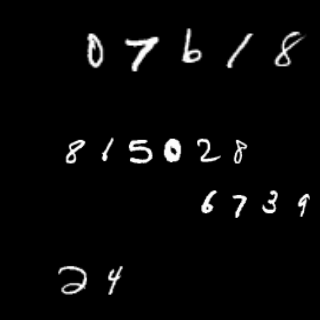 07618
815028
6739
24